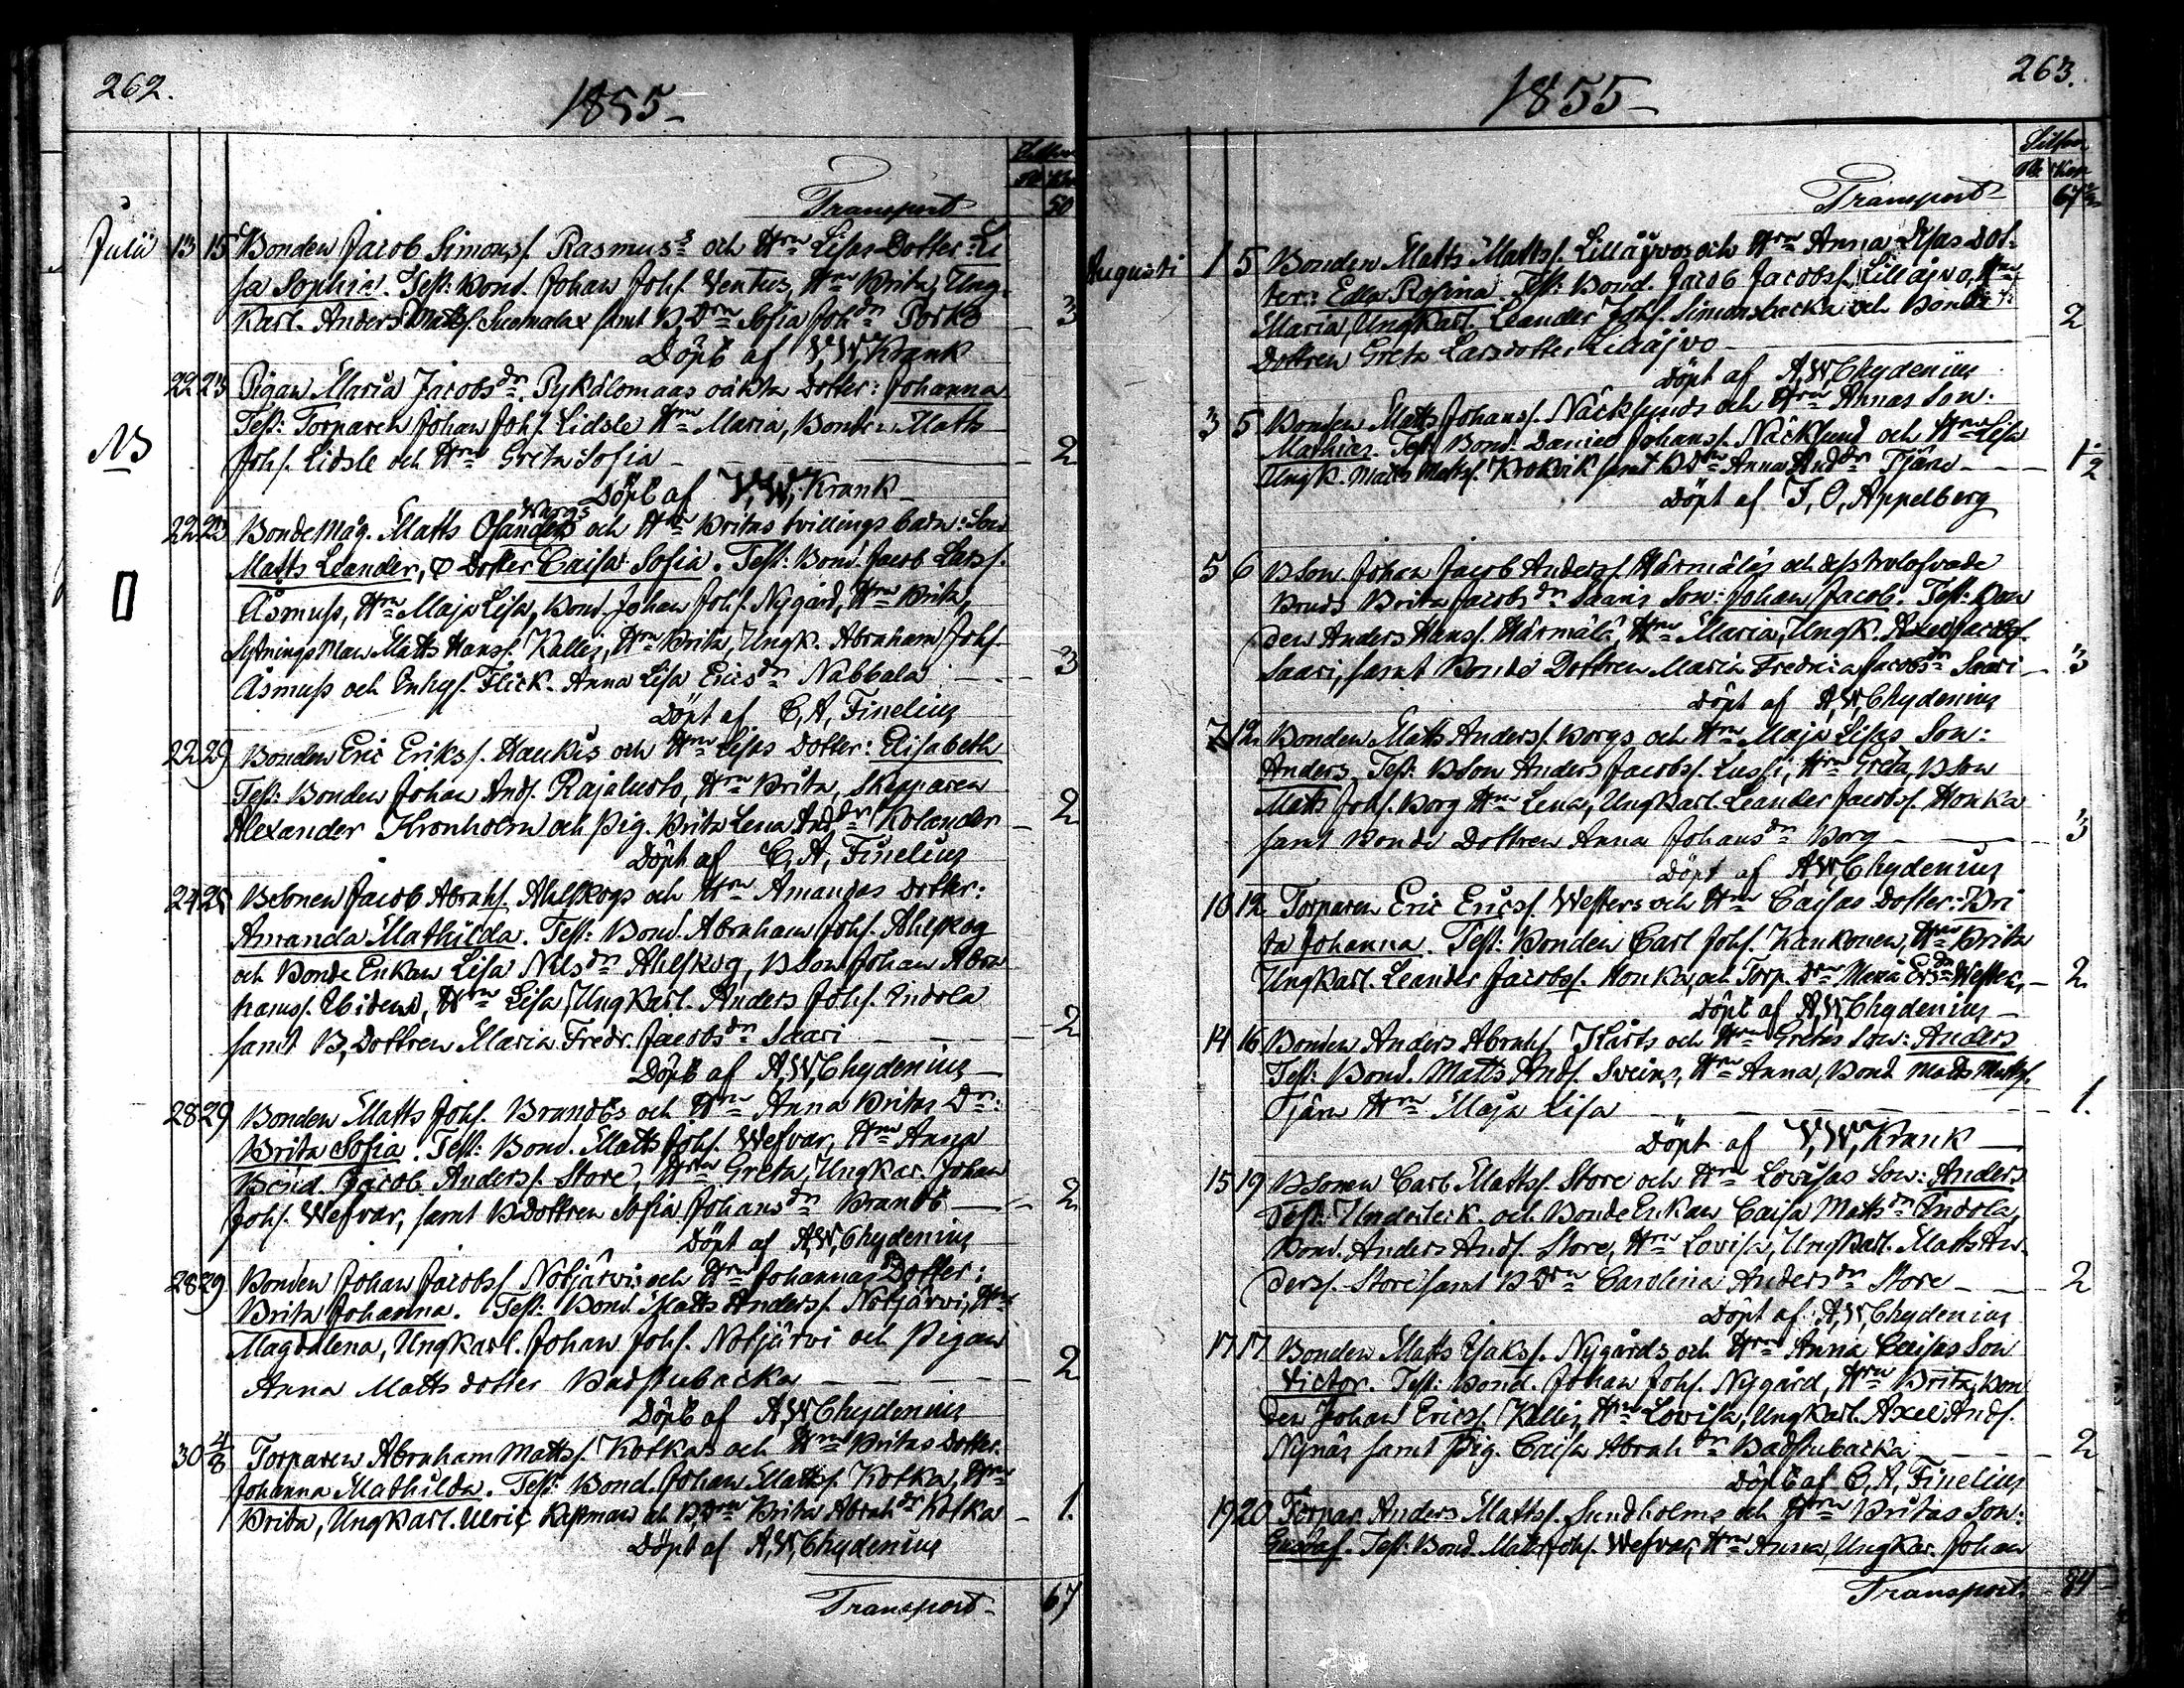 262.
1855–
Silfver
Transport 50
Julii 13 15 Bonden Jacob Simonss. Rasmus's och Hrn Lisas Dotter: Li
sa Sophia. Test: Bond. Johan Johs. Ventus, Hrn Brita, Ung-
Karl. Anders Matss. Suomalax samt B,Drn Sofia Johdr Porko – 3
Döpt af V,W,Krank
22 23 Pigan Maria Jacobsdr. Pykälomaas oäkta Dotter: Johanna
Test: Torparen Johan Johs. Lidsle Hrn Maria, Bonden Matts
NB Johs. Lidsle och Hrn Greta Sofia – 2
Döpt af V,W,Krank
22 23 BondeMåg. Matts Wargs och Hrn Britas tvillingsbarn: Son
Matts Leander, & Dotter Caisa Sofia. Test: Bond. Jacob Larss.
Åsmuss, Hrn Maja Lisa, Bond. Johan Johs. Nygård, Hrn Brita,
SytningsMan Matts Hanss. Kallis, Hrn Brita, Ungk. Abraham Johs.
Åsmuss och Flick. Anna Lisa Ericsdr Nabbala – 3
Döpt af C,A,Finelius
22 29 Bonden Eric Erikss. Haukis och Hrn Lisas Dotter: Elisabeth
Test: Bonden Johan Ands. Rajalusto, Hrn Brita, Skepparen
Alexander Kronholm och Pig. Brita Lena Anddr Kolander – 2
Döpt af C,A,Finelius
24 25 BSonen Jacob Abrahs. Ahlskogs och Hrn Amandas Dotter:
Amanda Mathilda. Test: Bond. Abraham Johs. Ahlskog
och BondeEnkan Lisa Nilsdr Ahlskog, BSon Johan Abra
hamss. Hrn Lisa, UngKarl. Anders Johs. Indola
samt B,Dottren Maria Fredr. Jacobsdr Saari – 2
Döpt af A,W,Chydenius
28 29 Bonden Matts Johs. Brandös och Hrn Anna Britas Dr:
Brita Sofia. Test: Bond. Matts Johs. Wefvar, Hrn Anna
Bond. Jacob Anderss. Store, Hrn Greta, Ungkar. Johan
Johs. Wefvar, samt BDottren Sofia Johansdr Brandö – 2
Döpt af A,W,Chydenius
28 29 Bonden Johan Jacobss. Notjärvis och Hrn Johannas Dotter:
Brita Johanna. Test: Bond. Matts Anderss. Notjärvi, Hrn
Magdalena, UngKarl. Johan Johs. Notjärvi och Pigan
Anna Matts dotter Badstubacka – 2
Döpt af A,W,Chydenius
30 4/8 Torparen Abraham Mattss. Kotkas och Hrn Britas Dotter.
Johanna Mathilda. Test: Bond. Johan Mattss. Kotka, Hrn
Brita, UngKarl. Ulric Kassman och B,Drn Brita Abrahdr Kotka – 1.
Döpt af A,W,Chydenius
Transport– 67
263.
1855–
Silfver
Transport– 67
Augusti 1 5 Bonden Matts Mattss. Lillåjvos och Hrn Anna Lisas Dot-
ter: Edla Rosina. Test: Bond. Jacob Jacobss. Lillåjvo, Hrn
Maria, UngKarl. Leander Johs. Simonsbacka och Bonde
Dottren Greta Larsdotter Lillåjvo – 2
Döpt af A,W,Chydenius
3 5 Bonden Matts Johanss. Näcklunds och Hrn Annas Son:
Mathias. Test: Bond. Daniel Johanss. Näcklund och Hrn Lisa
Ungk. Matts Matss. Krokvik samt BDrn Anna Anddr Tjäru – 1 1/2
Döpt af J,O,Appelberg
5 6 BSon Johan Jacob Anderss. Härmäläs och dess trolofvade
Bonds Brita Jacobsdr Saaris Son: Johan Jacob. Test: Bon
den Anders Hanss. Härmälä, Hrn Maria, Ungk. Axel Jacobss.
Saari, samt Bonde Dottren Maria Fredrica Jacobsdr Saari – 3
Döpt af A,W,Chydenius
7 12 Bonden Matts Anderss. Borgs och Hrn Maja Lisas Son:
Anders. Test: BSon Anders Jacobss. Lussi, Hrn Greta, BSon
Matts Johs. Borg Hrn Lena, UngKarl. Leander Jacobss. Honka
samt Bonde Dottren Anna Johansdr Borg – 3
Döpt af A,W,Chydenius
10 12 Torparen Eric Ericss. Westers och Hrn Caisas Dotter: Bri
ta Johanna. Test: Bonden Carl Johs. Kaukonen, Hrn Brita
UngKarl. Leander Jacobss. Honka, och Torp. Drn Maria Ersdr Wester, – 2
Döpt af A,W,Chydenius –
14 16 Bonden Anders Abrahs. Kårts och Hrn Gretas Son: Anders
Test: Bond. Matts Ands. Sveins, Hrn Anna, Bond. Matts Matss.
Tjäru Hrn Maja Lisa – 1.
Döpt af V,W,Krank –
15 19 BSonen Carl Mattss. Store och Hrn Lovisas Son: Anders
Test: och BondeEnkan Caisa Mattsdr Indola,
Bond. Anders Ands. Store, Hrn Lovisa, UngKarl. Matts An-
derss. Store samt B Drn Carolina Andersdr Store – 2
Döpt af A,W,Chydenius
17 17 Bonden Matts Isakss. Nygårds och Hrn Anna Caisas Son
Victor. Test: Bond. Johan Johs. Nygård, Hrn Brita, Bon
den Johan Ericss. Kallis, Hrn Lovisa, UngKarl. Axel Ands.
Nynäs samt Pig. Caisa Abrahdr Badstubacka – 2
Döpt af C,A,Finelius
19 20 Torpar. Anders Mattss. Sundholms och Hrn Britas Son:
Gustaf. Test: Bond. Matts Johs. Wefvar, Hrn Anna, Ungkar. Johan
Transport. – 84